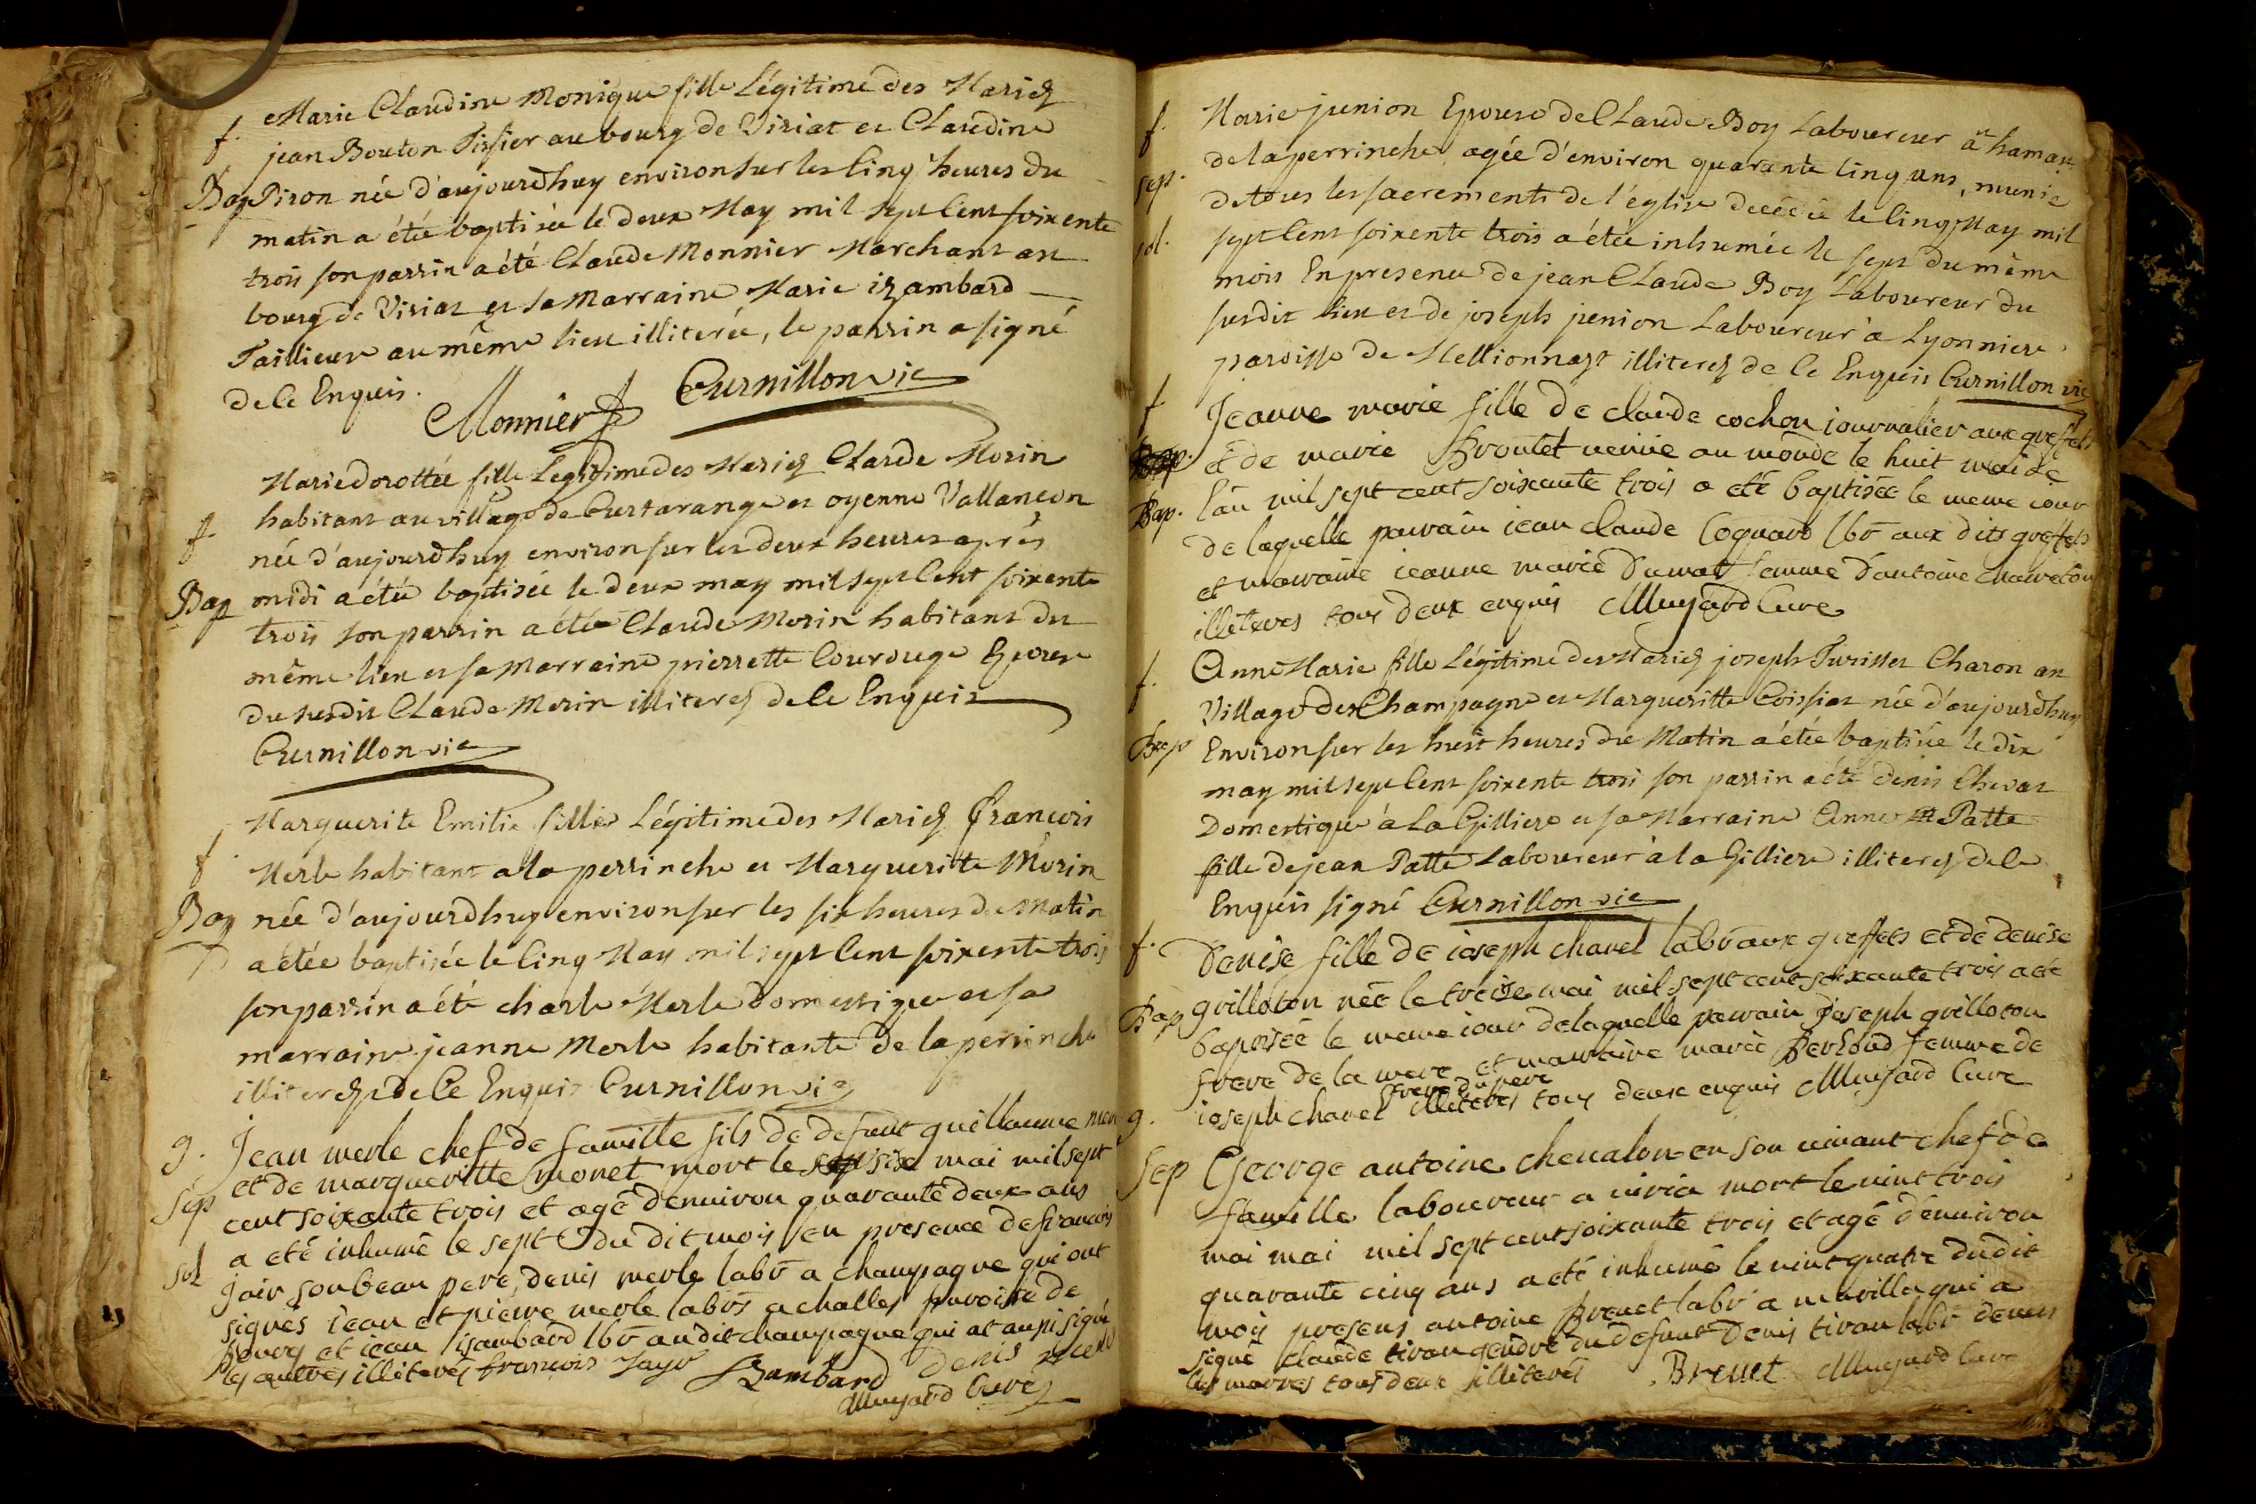 Marie Claudine Monique fille Légitime des Mariez
f. jean Bouton Tissier au bourg de Viriat et Claudine
Bap Piron née d'aujourdhuy environ sur les Cinq heures du
matin a étée baptisée le deux May mil sept Cent soixente
trois son parrin a été Claude Monnier Marchant au
bourg de Viriat et sa Marraine Marie izambard
Taillieuse au même lieu illiterée, le parrin a signé
de Ce Enquis.
Monnier Curnillon vic
Marie dorottée fille Legitime des Mariez Claude Morin
habitant au village de Curtarange et oyenne Vallançon
f. née d'aujourdhuy environ sur les deux heures après
Bap midi a étée baptisée le deux may mil sept Cent soixente
trois son parrin a été Claude Morin habitant du
même lieu et sa Marraine pierrette Courouge Epouse
du susdit Claude Morin illiterez de Ce Enquis
Curnillon vic
Marguerite Emilie fille Légitime des Mariez François
f. Merle habitant a la perrinche et Margueritte Morin
Bap née d'aujourdhuy environ sur les six heures du Matin
a étée baptisée le Cinq May mil sept Cent soixente trois
son parrin a été charle Merle domestique et sa
marraine jeanne Merle habitante de la perrinche
illiterez de Ce Enquis Curnillon vic
g. Jean merle chef de famille fils de defunt guillaume
Sep et de margueritte monet mort le six mai mil sept
cent soixante trois et agé denuiron quarante deux ans
a eté inhumé le sept du dit mois en presence de francois
sol jair son beau pere, denis merle labr a champagne qui ont
signés iean et pierre merle labrs a challes paroisse de
et iean isambard lbr audit champagne qui at aussi signé
les autres illiterés francois Jayr Izambard denis merle
Mugard Curé
f. Marie junion Epouse de Claude Boy Laboureur au hamau
sep. de la perrinche, agée d'environ quarante Cinq ans, munie
de tous les sacrements de l'église decédée le Cinq May mil
sol. sept Cent soixente trois a étée inhumée le sept du même
mois En presence de jean Claude Boy Laboureur du
susdit lieu et de joseph junion Laboureur à Lyonniere
paroisse de Mellionnaz illiterez de Ce Enquis Curnillon vic
f Jeanne marie fille de claude cochon iournalier aux greffets
Bap. et de marie Broutet venüe au monde le huit mai de
Bap. l'an mil sept cent soixante trois a eté baptisée le meme iour
de laquelle parrain iean claude Coquard lbr aux dits greffets
et marraine ieanne marie Dumat femme d'antoine chaneton
illiteres tous deux enquis Mugard Cure
f. Anne Marie fille Légitime des Mariez joseph Turissez Charon au
Village de Champagne et Margueritte Coissiat née d'aujourdhuy
Bap Environ sur les huit heures du Matin a étée baptisée le dix
may mil sept Cent soixente trois son parrin a été denis Chevat
Domestique à La Gilliere et sa Marraine Anne Patte
fille de jean Patte Laboureur à la Gilliere illiterez de Ce
Enquis signé Curnillon vic
f. Denise fille de ioseph chanel labr aux greffets et de denise
Bap grilloton née le treise mai mil sept cent soixante trois a eté
baptisée le meme iour de laquelle parrain joseph grilloton
frere de la mere et marraine marie Berhoud femme de
frere du pere
ioseph chanel illiteres tous deux enquis Mugard Cure
g.
Sep George antoine cheualon en son uiuant chef de
famille laboureur a uiria mort le uint trois
mai mai mil sept cent soixante trois et agé d'enuiron
quarante cinq ans a eté inhumé le uint quatre dudit
mois presens antoine Breuet labr a mauille qui a
signe claude tiran gendre du defunt Denis tiran labr
les marres tous deux illiterés Breuet Mugard Cure